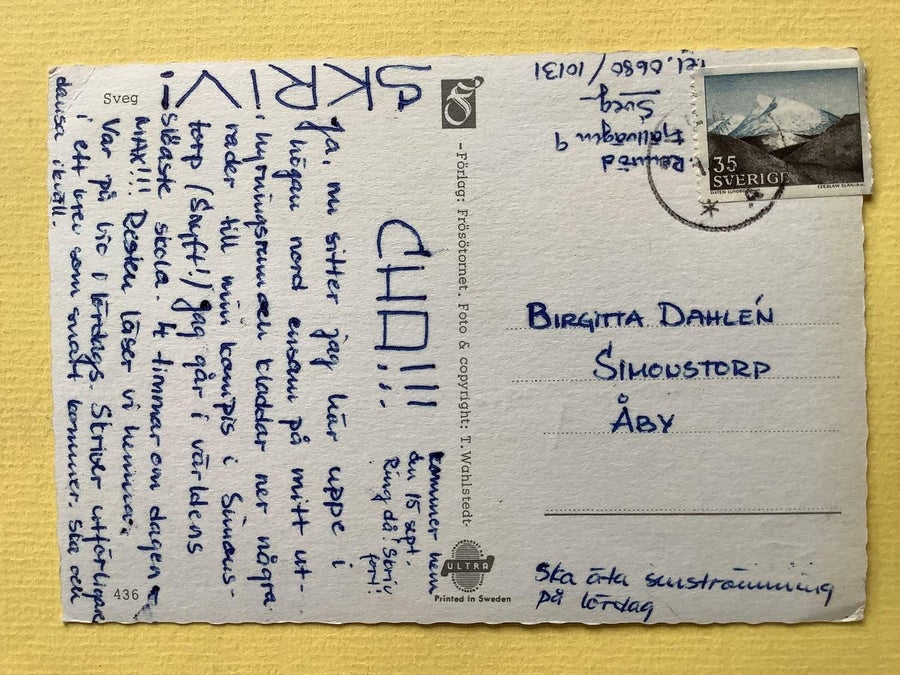 Sveg
SKRIV!
kommer hem
den 15 sept.
Ring då! Skriv
fort!
Ja, nu sitter jag här uppe i
högan nord ensam på mitt ut-
hyrningsrum och kladdar ner några
rader till min kompis i Simons-
torp (Snyft!) Jag går i världens
slöaste skola. 4 timmar om dagen
MAX!!! Resten läser vi hemma.
Var på bio i lördags. Skriver utförligare
i ett brev som snart kommer. Ska och
dansa ikväll.
436
-Förlag: Frösötornet. Foto & copyright: T. Wahlstedt-
ULTRA
Printed in Sweden
Fjällvägen 9
Sveg
Tel. 0680/10131
35
SVERIGE
CZESLAW SLANIA
BIRGITTA DAHLÉN
SIMONSTORP
ÅBY
Ska äta surströmming
på lördag